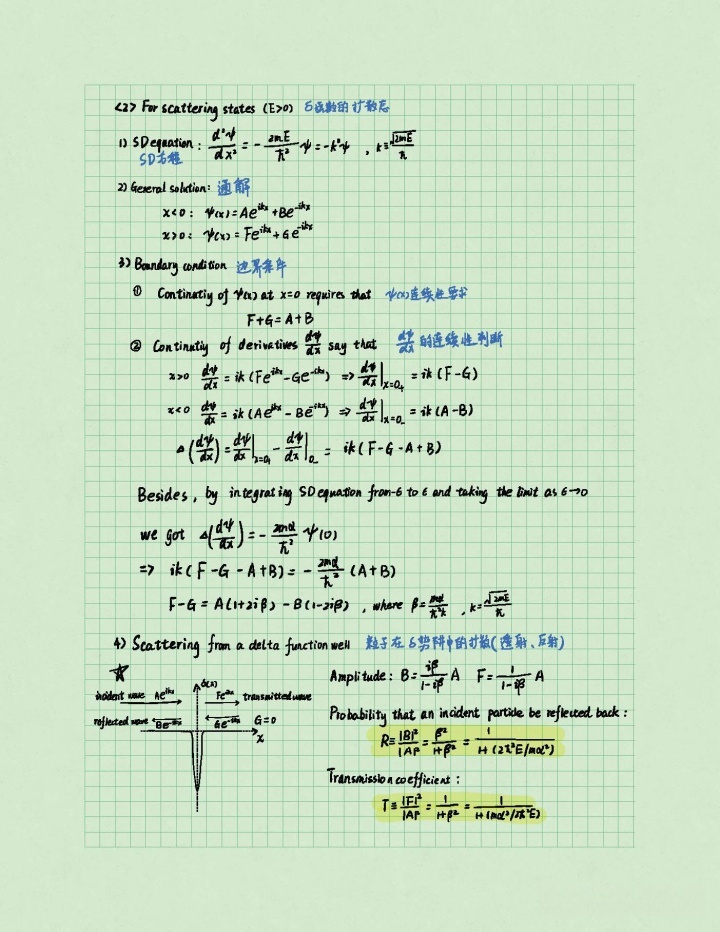 <2> For scattering states (E>0) δ函数的扩散态
1) SD equation: d²ψ/dx² = - 2mE/ħ² ψ = -k²ψ , k≡√2mE/ħ
SD方程
2) General solution: 通解
x<0: ψ(x) = Ae^ikx + Be^-ikx
x>0: ψ(x) = Fe^ikx + Ge^-ikx
3) Boundary condition 边界条件
① Continutiy of ψ(x) at x=0 requires that ψ(x)连续性要求
F+G=A+B
② Continutiy of derivatives dψ/dx say that dψ/dx 的连续性判断
x>0 dψ/dx = ik (Fe^ikx - Ge^-ikx) => dψ/dx|x=0+ = ik (F-G)
x<0 dψ/dx = ik (Ae^ikx - Be^-ikx) => dψ/dx|x=0- = ik (A-B)
Δ(dψ/dx) = dψ/dx|x=0+ - dψ/dx|0- = ik (F-G-A+B)
Besides, by integrating SD equation from -ϵ to ϵ and taking the limit as ϵ→0
we got Δ(dψ/dx) = - 2mα/ħ² ψ(0)
=> ik (F-G-A+B) = - 2mα/ħ² (A+B)
F-G = A(1+2iβ) - B(1-2iβ) , where β= mα/ħ²k , k=√2mE/ħ
4) Scattering from a delta function well 粒子在δ势阱中的扩散(透射、反射)
☆
Amplitude: B= iβ/1-iβ A F= 1/1-iβ A
δ(x)
incident wave Ae^ikx Fe^ikx transmitted wave
reflected wave Be^-ikx Ge^-ikx G=0
x
Probability that an incident particle be reflected back:
R≡ |B|²/|A|² = β²/1+β² = 1/1+(2ħ²E/mα²)
Transmission coefficient:
T≡ |F|²/|A|² = 1/1+β² = 1/1+(mα²/2ħ²E)